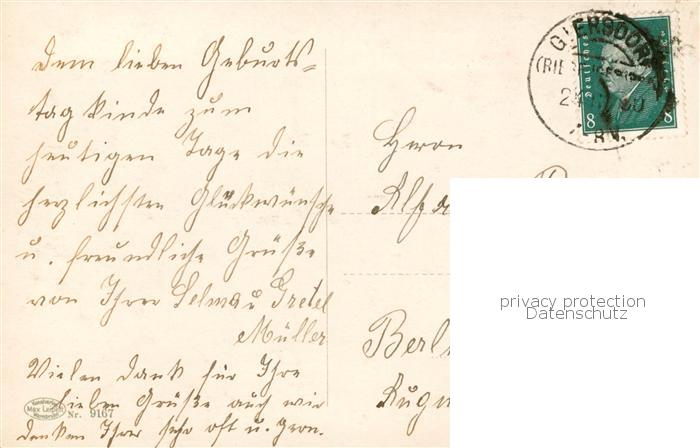 Dem lieben Geburts=
tagskinde zum
heutigen Tage die
herzlichsten Glückwünsche
u. freundliche Grüße
von Ihrer Selma u Gretel
Müller
Vielen Dank für Ihre
lieben Grüße auch wir
denken Ihrer sehr oft u. gern.
Max Leipelt
Nr. 9167
GIERSDORF
Deutsches
8 8
Herrn
Berl
privacy protection
Datenschutz